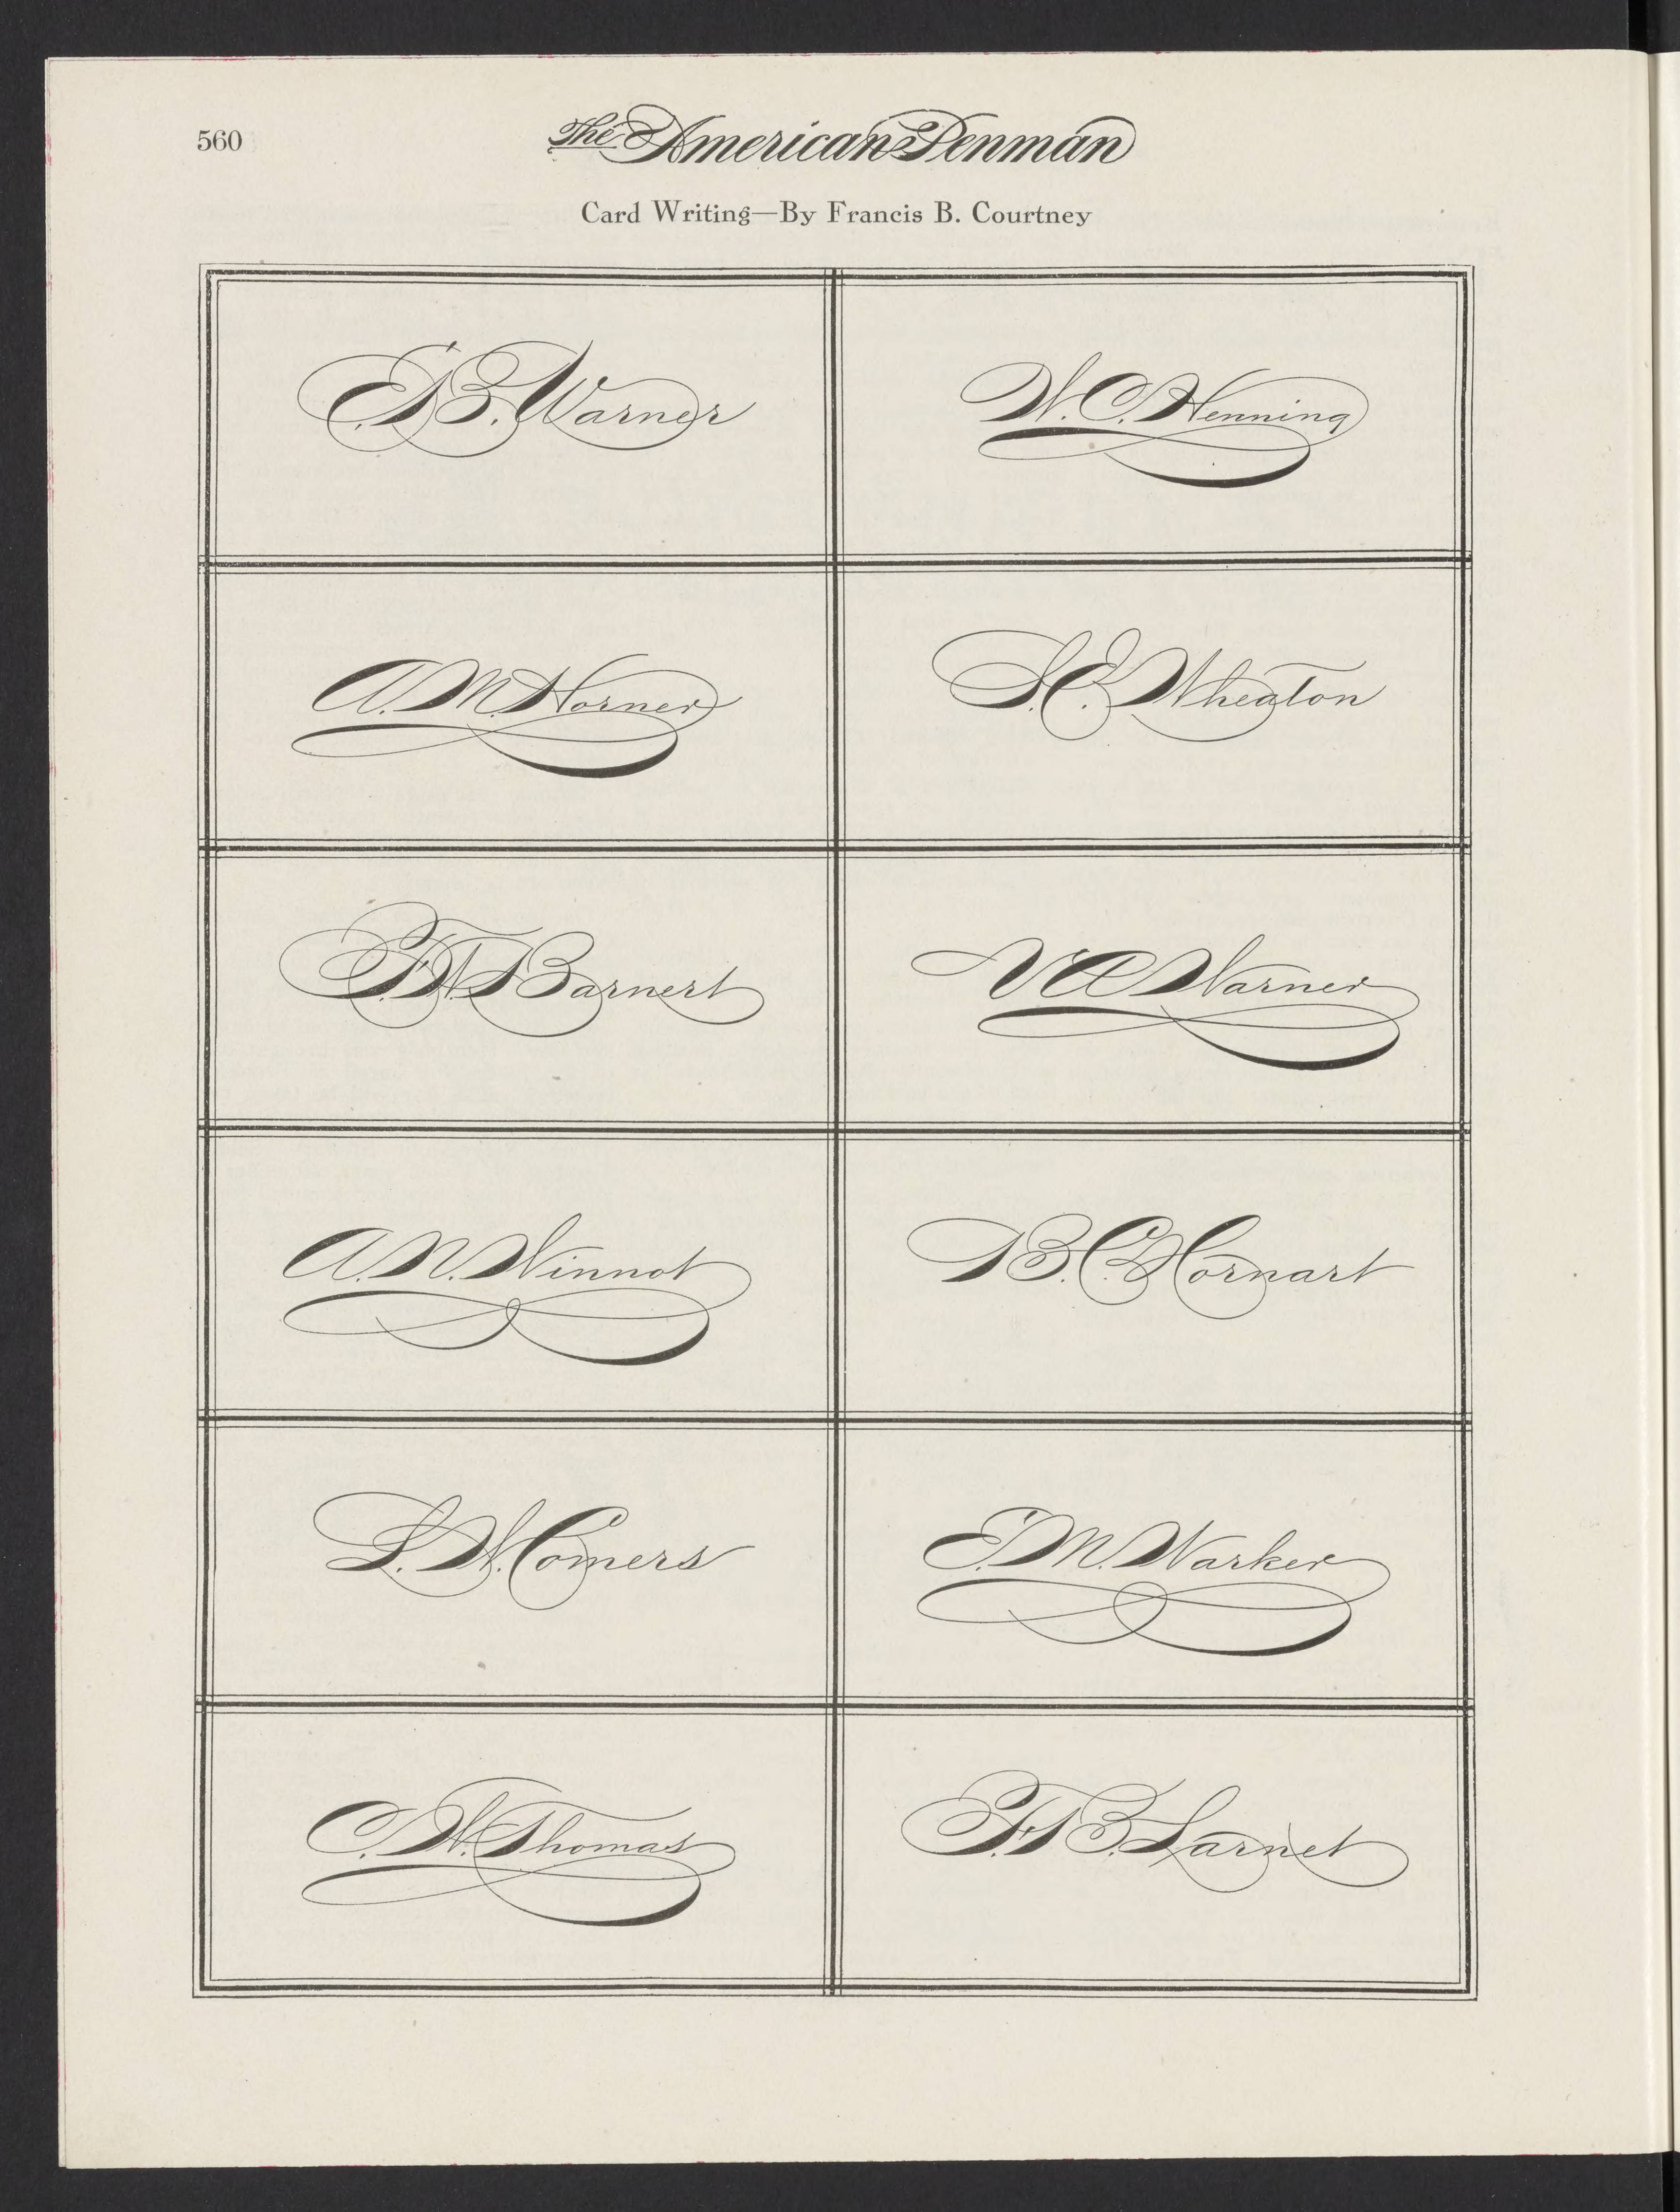 560
The American Penman
Card Writing—By Francis B. Courtney
E. B. Warner
W. C. Henning
A. M. Horner
S. E. Wheaton
F. W. Barnert
V A Warner
A. N. Winnot
B. C. Hornart
L. W. Comers
E. M. Warker
C. W. Thomas
F. B. Larnet